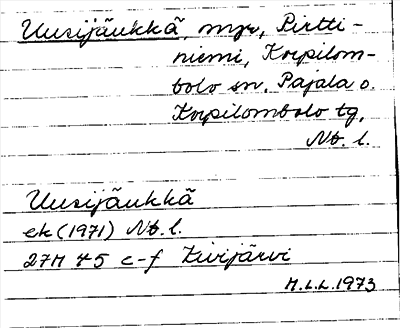 Uusijäukkä, myr, Pirtti-
niemi, Korpilom-
bolo sn. Pajala o.
Korpilombolo tg,
Nb. l.
Uusijäukkä
ek (1971) Nb. l.
27M 45 c-f Kivijärvi
M.L.L. 1973